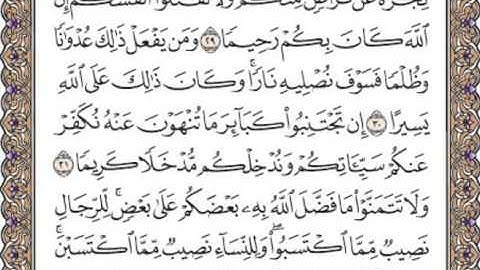 تِجَٰرَةً عَن تَرَاضٖ مِّنكُمۡۚ وَلَا تَقۡتُلُوٓاْ أَنفُسَكُمۡۚ إِنَّ
ٱللَّهَ كَانَ بِكُمۡ رَحِيمٗا ٢٩ وَمَن يَفۡعَلۡ ذَٰلِكَ عُدۡوَٰنٗا
وَظُلۡمٗا فَسَوۡفَ نُصۡلِيهِ نَارٗاۚ وَكَانَ ذَٰلِكَ عَلَى ٱللَّهِ
يَسِيرًا ٣٠ إِن تَجۡتَنِبُواْ كَبَآئِرَ مَا تُنۡهَوۡنَ عَنۡهُ نُكَفِّرۡ
عَنكُمۡ سَيِّـَٔاتِكُمۡ وَنُدۡخِلۡكُم مُّدۡخَلٗا كَرِيمٗا ٣١
وَلَا تَتَمَنَّوۡاْ مَا فَضَّلَ ٱللَّهُ بِهِۦ بَعۡضَكُمۡ عَلَىٰ بَعۡضٖۚ لِّلرِّجَالِ
نَصِيبٞ مِّمَّا ٱكۡتَسَبُواْۖ وَلِلنِّسَآءِ نَصِيبٞ مِّمَّا ٱكۡتَسَبۡنَۚ